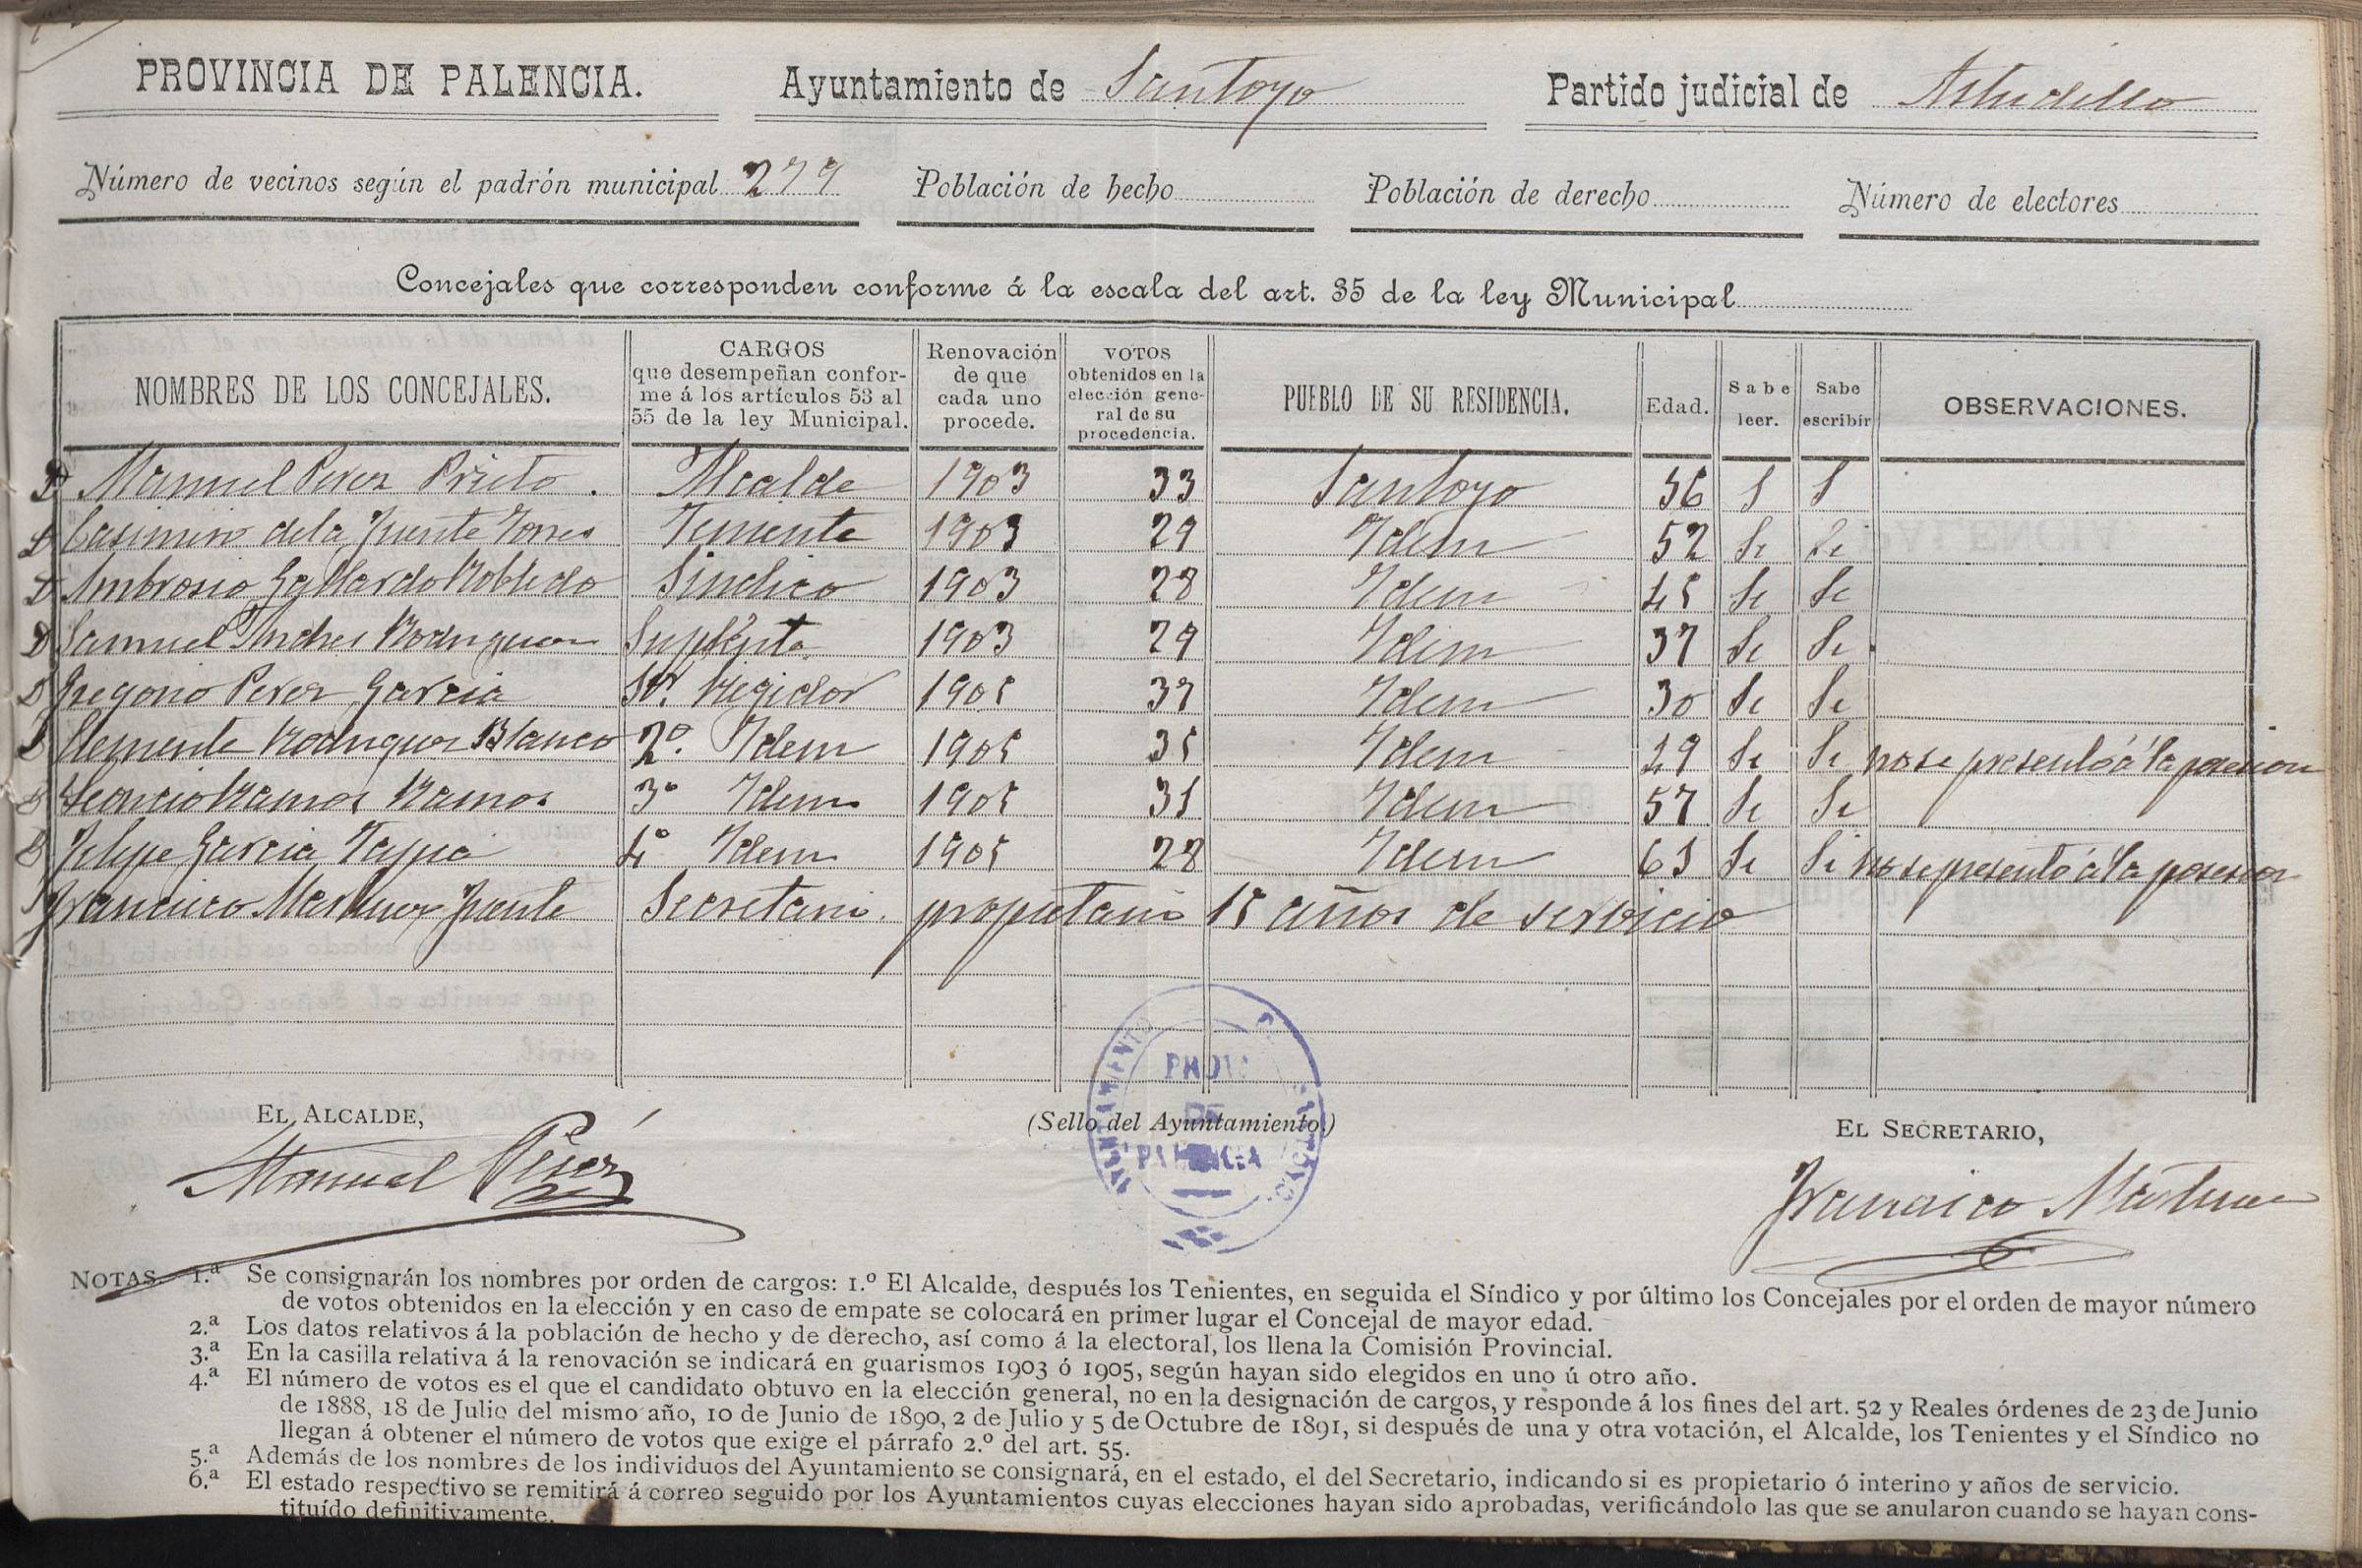 PROVINCIA DE PALENCIA. Ayuntamiento de Santoyo Partido judicial de Astudillo
Número de vecinos según el padrón municipal 277 Población de hecho Población de derecho Número de electores
Concejales que corresponden conforme á la escala del art. 35 de la ley Municipal
NOMBRES DE LOS CONCEJALES. CARGOS que desempeñan confor- me á los artículos 53 al 55 de la ley Municipal. Renovación de que cada uno procede. VOTOS obtenidos en la elección gene- ral de su procedencia. PUEBLO DE SU RESIDENCIA. Edad. Sabe leer. Sabe escribir OBSERVACIONES.
D. Manuel Perez Prieto. Alcalde 1903 33 Santoyo 56 S S
D Casimiro dela Fuente Torres Teniente 1903 29 Idem 52 Si Si
D Ambrosio Gallardo Robledo Sindico 1903 28 Idem 45 Si Si
D Samuel Andres Rodriguez Suplente 1903 29 Idem 37 Si Si
D Gregorio Perez Garcia Regidor 1905 37 Idem 30 Si Si
D Clemente Rodriguez Blanco 2º. Idem 1905 35 Idem 29 Si Si no se presentó á la posesion
D Leoncio Ramos Ramos 3º Idem 1905 31 Idem 57 Si Si
D Felipe Garcia Tapia 4º Idem 1905 28 Idem 63 Si Si no se presentó á la posesion
Francisco Martinez Fuente Secretario propietario 15 años de servicio
AYUNTAMIENTO DE SANTOYO PROVA DE PALENCIA
EL ALCALDE, (Sello del Ayuntamiento.) EL SECRETARIO,
Manuel Perez Francisco Martinez
NOTAS 1.ª Se consignarán los nombres por orden de cargos: 1.º El Alcalde, después los Tenientes, en seguida el Síndico y por último los Concejales por el orden de mayor número
de votos obtenidos en la elección y en caso de empate se colocará en primer lugar el Concejal de mayor edad.
2.ª Los datos relativos á la población de hecho y de derecho, así como á la electoral, los llena la Comisión Provincial.
3.ª En la casilla relativa á la renovación se indicará en guarismos 1903 ó 1905, según hayan sido elegidos en uno ú otro año.
4.ª El número de votos es el que el candidato obtuvo en la elección general, no en la designación de cargos, y responde á los fines del art. 52 y Reales órdenes de 23 de Junio
de 1888, 18 de Julio del mismo año, 10 de Junio de 1890, 2 de Julio y 5 de Octubre de 1891, si después de una y otra votación, el Alcalde, los Tenientes y el Síndico no
llegan á obtener el número de votos que exige el párrafo 2.º del art. 55.
5.ª Además de los nombres de los individuos del Ayuntamiento se consignará, en el estado, el del Secretario, indicando si es propietario ó interino y años de servicio.
6.ª El estado respectivo se remitirá á correo seguido por los Ayuntamientos cuyas elecciones hayan sido aprobadas, verificándolo las que se anularon cuando se hayan cons-
tituído definitivamente.